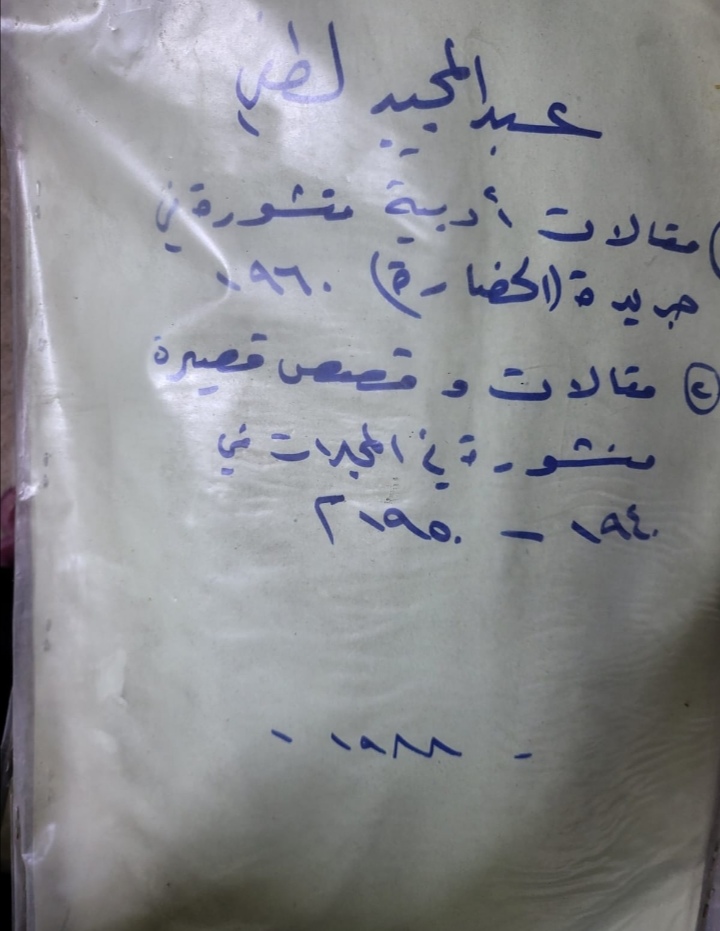 عبد المجيد لطفي
مقالات أدبية منشورة في
جريدة (الحضارة) ١٩٦٠
② مقالات و قصص قصيرة
منشورة في المجلات في
١٩٤٠ – ١٩٥٠م
- ١٩٨٨ -